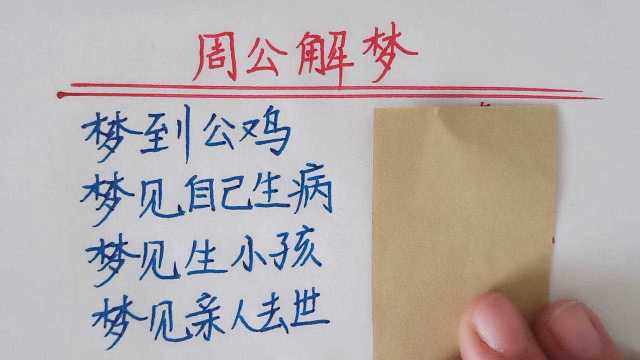 周公解梦
梦到公鸡
梦见自己生病
梦见生小孩
梦见亲人去世